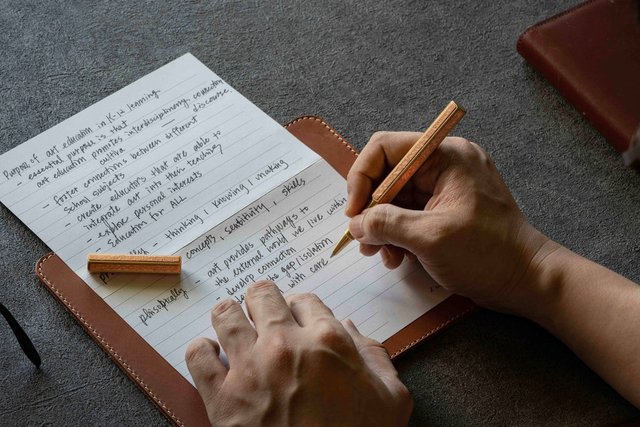 Purpose of art education in K-12 learning
- essential purpose is that
art education promotes interdisciplinary, connecting
cultive discourse
foster connections between different
school subjects
- create educators that are able to
integrate art into their teaching
- explore personal interests
- Education for ALL
- thinking / knowing / making
concepts, sensitivity, skills
philosophically - art provides pathways to
the external world we live within
- develop connection
the gap/isolation
with care